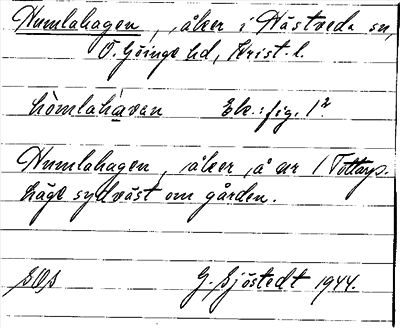 Humlahagen, åker i Hästveda sn,
Ö. Göinge hd, Krist. l.
hòmlahàvan Ek.: fig. 1².
Humlahagen, åker, å nr 1 Tottarps-
läge sydväst om gården.
SOS G. Sjöstedt 1944.